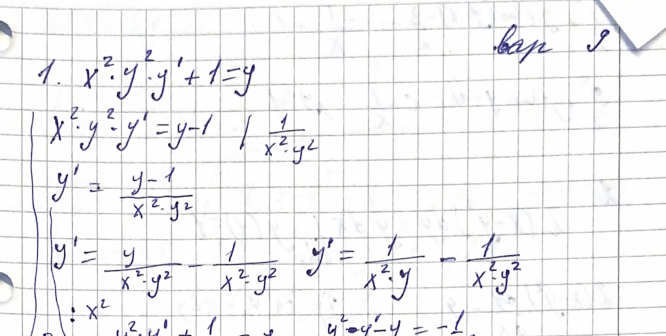 вар 9
1. x²·y²·y' + 1 = y
x²·y²·y' = y-1 | 1/(x²·y²)
y' = (y-1)/(x²·y²)
y' = y/(x²·y²) - 1/(x²·y²)   y' = 1/(x²·y) - 1/(x²·y²)
: x²